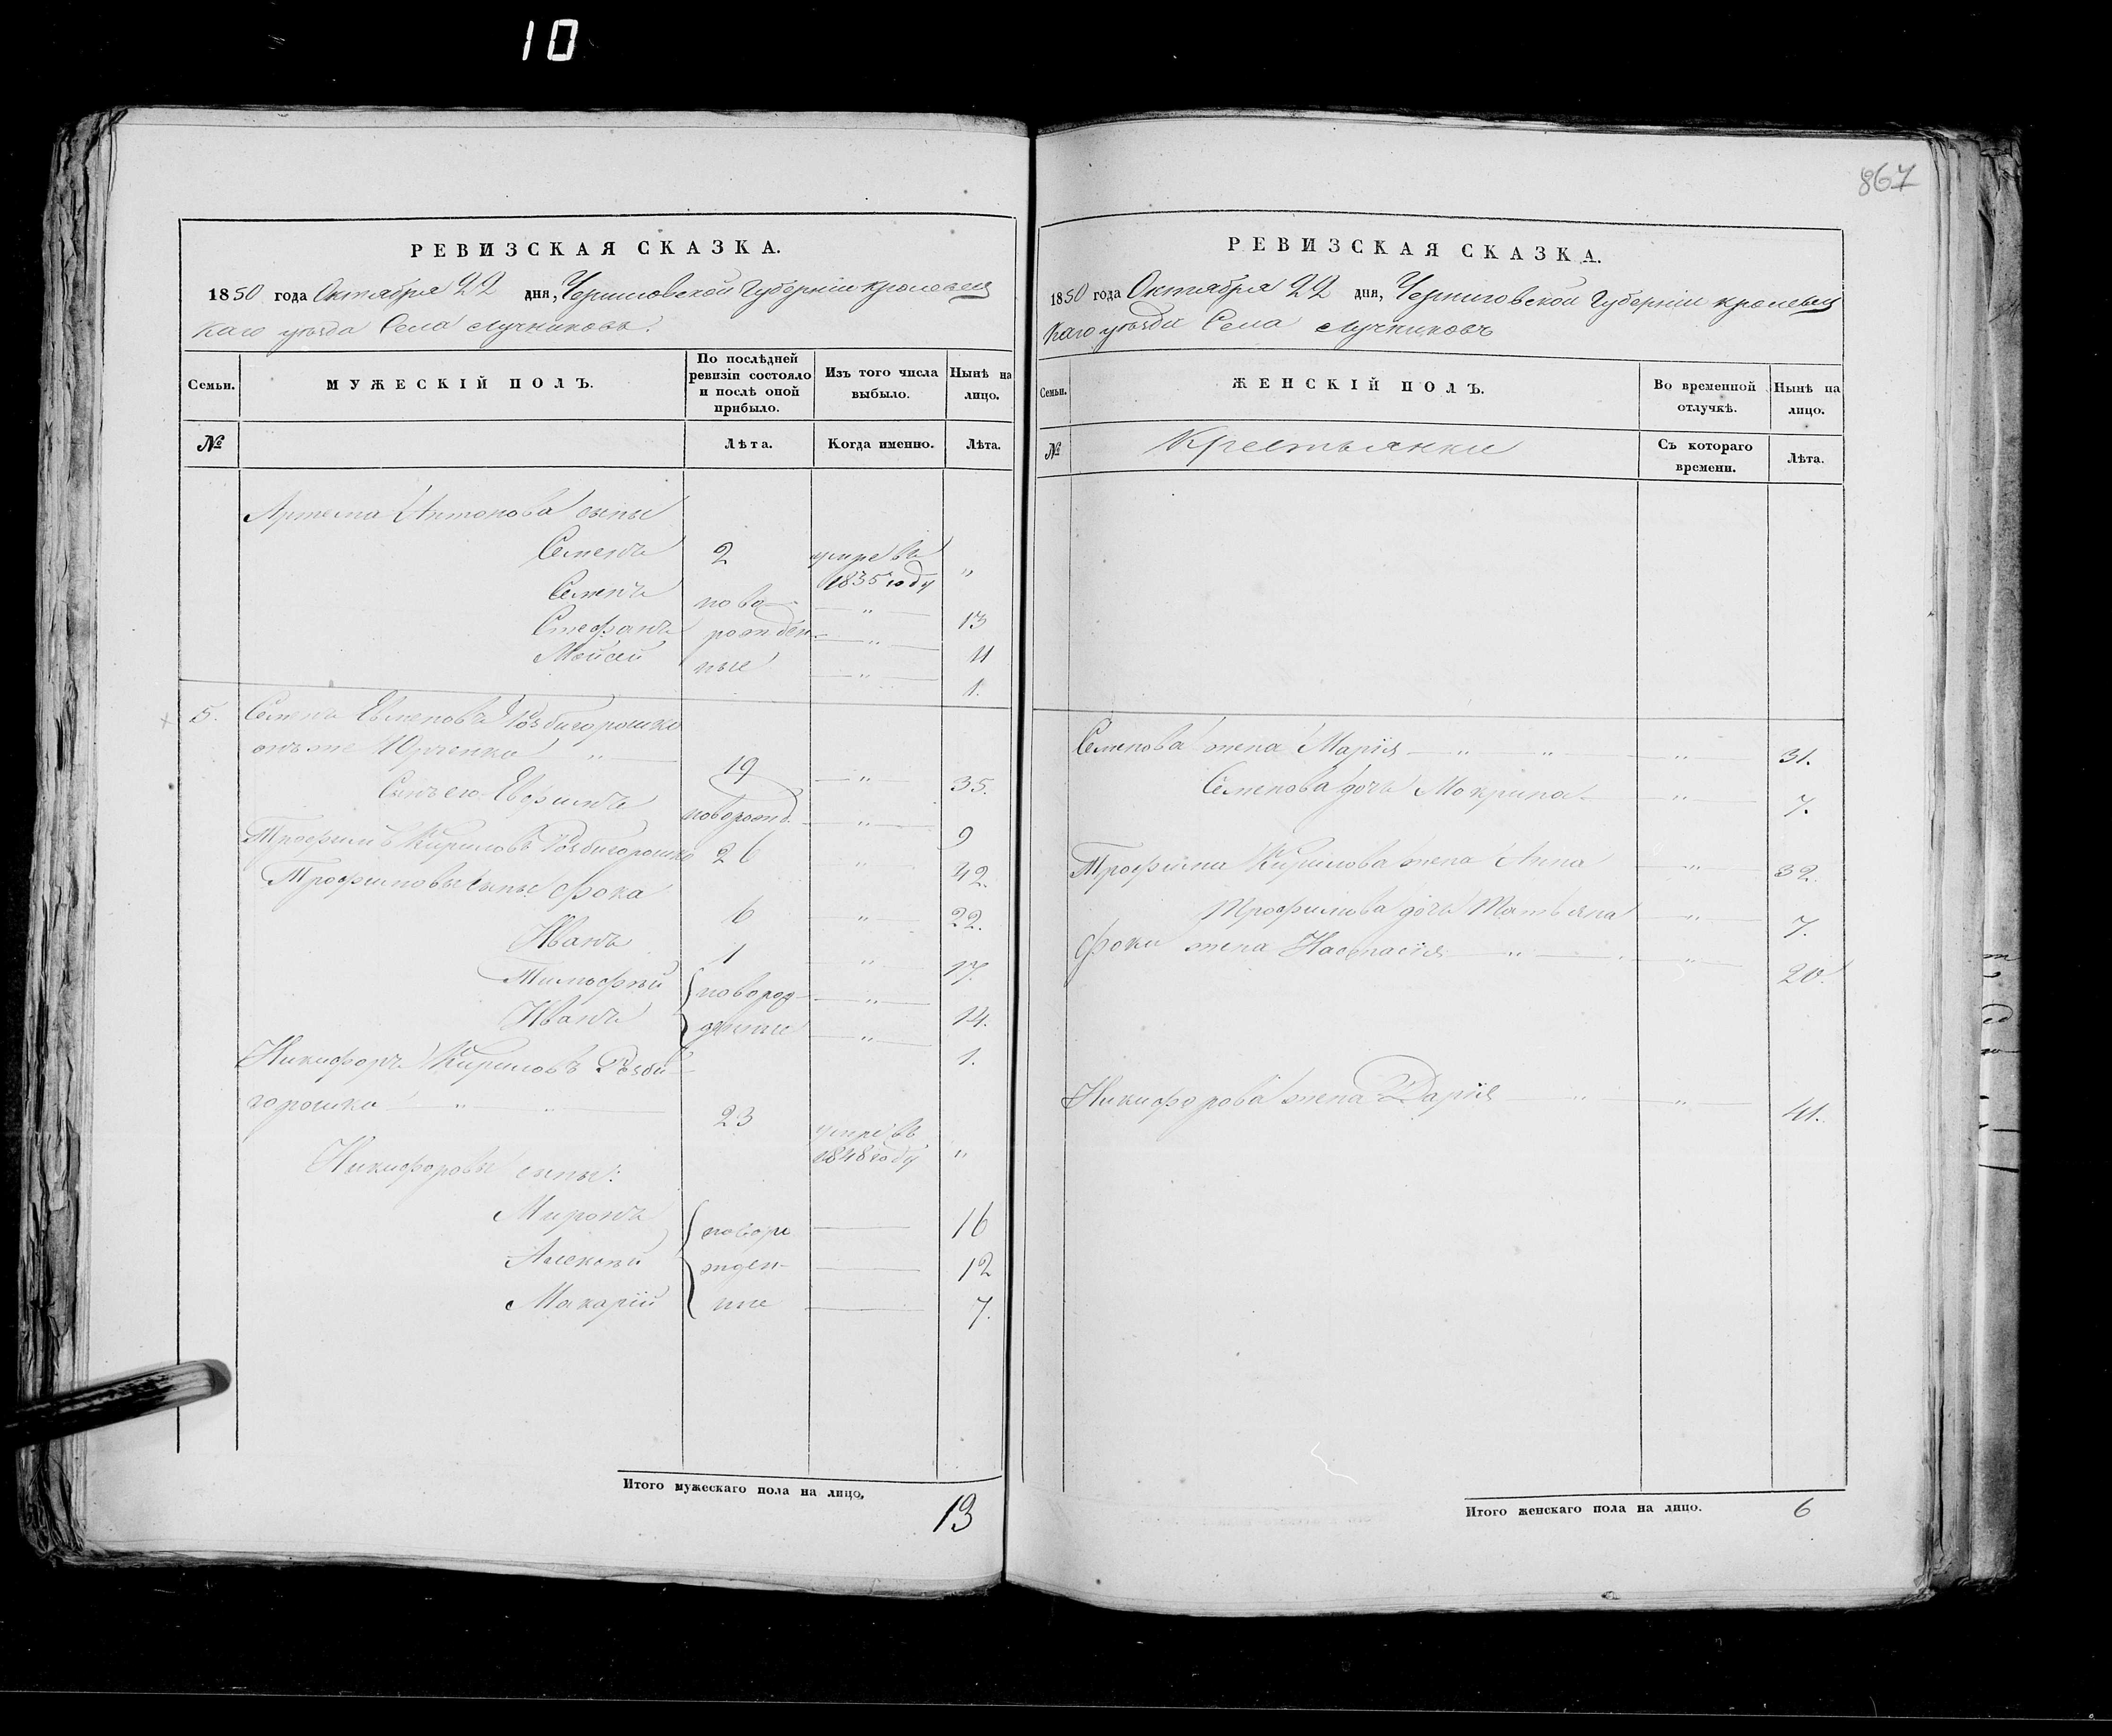 10
867
РЕВИЗСКАЯ СКАЗКА.
1850 года Октября 22 дня, Черниговской Губерніи Кролевец
каго уѣзда Села Лучниковъ.
Семьи.
МУЖЕСКІЙ ПОЛЪ.
По послѣдней ревизіи состояло и послѣ оной прибыло.
Изъ того числа выбыло.
Нынѣ на лицо.
№
Лѣта.
Когда именно.
Лѣта.
Артема Антонова сыны
Семенъ 2 умре въ
1835 году "
Семенъ ново- " 13
Стефанъ рожден- " 11
Мойсей ные " 1.
5. Семенъ Евменовъ
онъ же Юрченко " 19 " 35.
Сынъ его Ефимъ новорожд. " 9
Трофимъ Кириловъ 26 " 42.
Трофимовы сыны Фока 6 " 22.
Иванъ 1 " 17.
Тимофѣй новорож- " 14.
Иванъ денные " 1.
Никифоръ Кириловъ
горошко " 23 умре въ
1848 году "
Никифоровы сыны:
Миронъ новоро 16
Алексѣй жден- 12
Макарій ные 7.
Итого мужескаго пола на лицо, 13
РЕВИЗСКАЯ СКАЗКА.
1850 года Октября 22 дня, Черниговской Губерніи Кролевец
каго уѣзда Села Лучниковъ
Семьи.
ЖЕНСКІЙ ПОЛЪ.
Во временной отлучкѣ.
Нынѣ на лицо.
№
Крестьянки
Съ котораго времени.
Лѣта.
Семенова жена Марія " " " 31.
Семенова дочь Макрина " 7.
Трофима Кирилова жена Анна " 32.
Трофимова дочь Татьяна " 7.
Фоки жена Настасія " " 20.
Никифорова жена Дарія " " 41.
Итого женскаго пола на лицо. 6